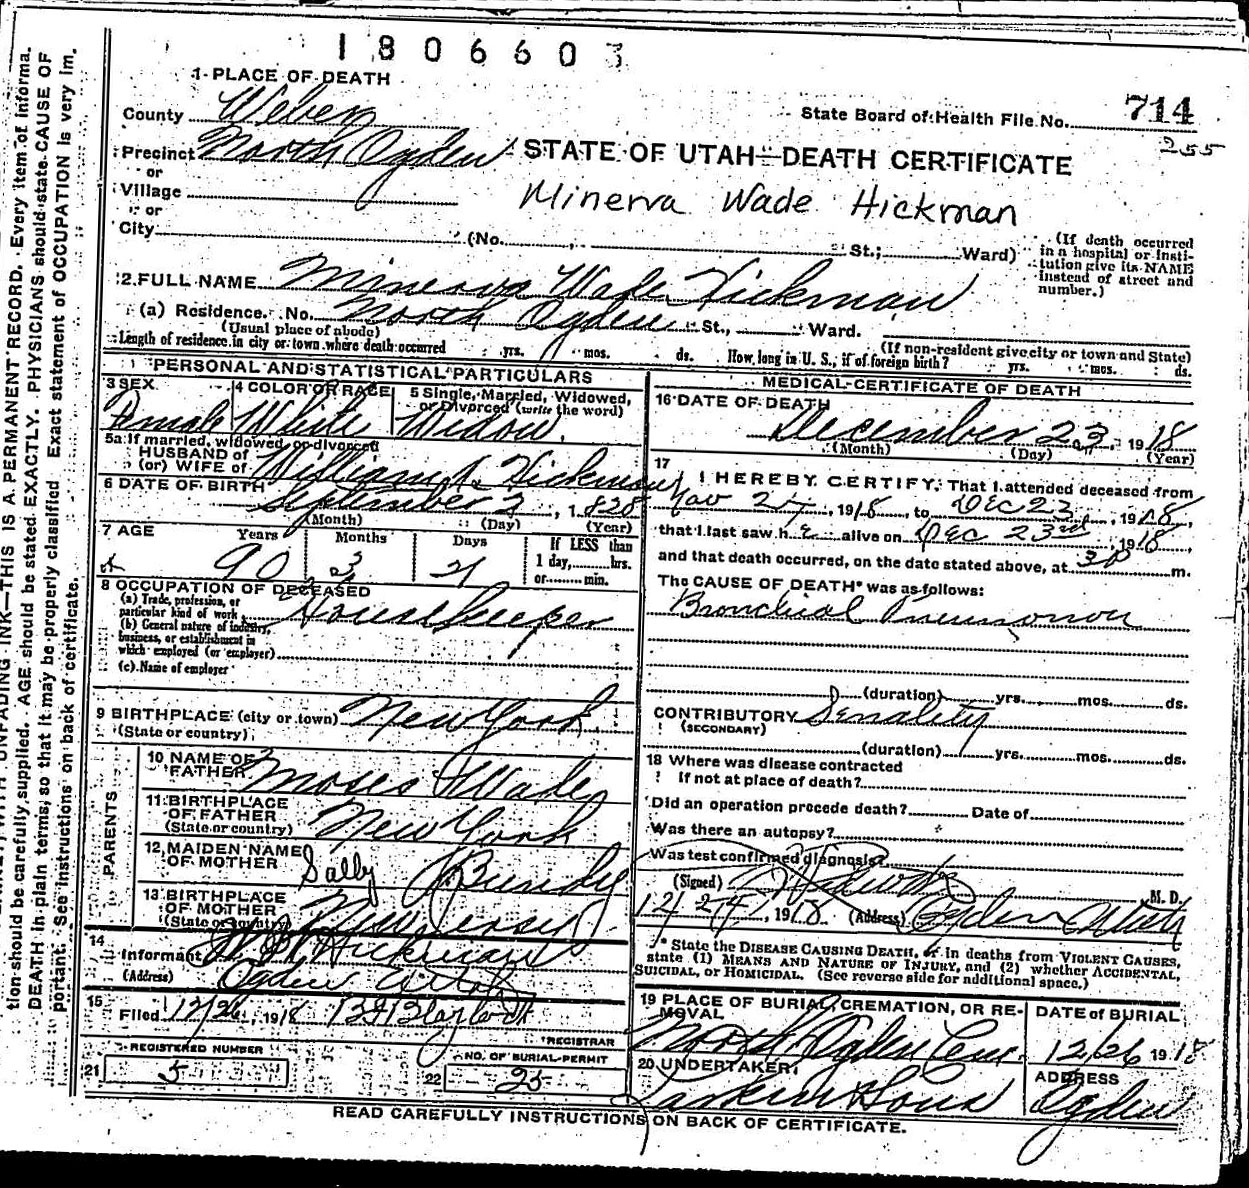 1806603
1 PLACE OF DEATH
County Weber
State Board of Health File No. 714
255
Precinct North Ogden
STATE OF UTAH—DEATH CERTIFICATE
or
Village
Minerva Wade Hickman
or
City (No. , St.; Ward)
(If death occurred
in a hospital or insti-
tution give its NAME
instead of street and
number.)
2 FULL NAME Minerva Wade Hickman
(a) Residence. No. North Ogden St., Ward.
(Usual place of abode)
(If non-resident give city or town and State)
Length of residence in city or town where death occurred yrs. mos. ds. How long in U. S., if of foreign birth? yrs. mos. ds.
PERSONAL AND STATISTICAL PARTICULARS
3 SEX
Female
4 COLOR OR RACE
White
5 Single, Married, Widowed,
or Divorced (write the word)
Widow.
5a If married, widowed or divorced
HUSBAND of
(or) WIFE of William Hickman
6 DATE OF BIRTH
September 2, 1828
(Month) (Day) (Year)
7 AGE Years Months Days
90 3 21
If LESS than
1 day, hrs.
or min.
8 OCCUPATION OF DECEASED
(a) Trade, profession, or
particular kind of work Housekeeper
(b) General nature of industry,
business, or establishment in
which employed (or employer)
(c) Name of employer
9 BIRTHPLACE (city or town) New York
(State or country)
PARENTS
10 NAME OF
FATHER Moses Wade
11 BIRTHPLACE
OF FATHER
(State or country) New York
12 MAIDEN NAME
OF MOTHER Sally Bundy
13 BIRTHPLACE
OF MOTHER
(State or country) New Jersey
14
Informant Hickman
(Address) Ogden Utah
15
Filed 12/26, 1918
REGISTRAR
REGISTERED NUMBER
21 5
NO. OF BURIAL PERMIT
22 25
MEDICAL CERTIFICATE OF DEATH
16 DATE OF DEATH
December 23, 1918
(Month) (Day) (Year)
17
I HEREBY CERTIFY, That I attended deceased from
Nov 27, 1918, to Dec 23, 1918,
that I last saw her alive on Dec 23rd, 1918,
and that death occurred, on the date stated above, at 3 P m.
The CAUSE OF DEATH* was as follows:
Bronchial Pneumonia
(duration) yrs. mos. ds.
CONTRIBUTORY Senality
(SECONDARY)
(duration) yrs. mos. ds.
18 Where was disease contracted
if not at place of death?
Did an operation precede death? Date of
Was there an autopsy?
Was test confirmed diagnosis?
(Signed) M. D.
12/24, 1918 (Address) Ogden Utah
* State the DISEASE CAUSING DEATH, or in deaths from VIOLENT CAUSES,
state (1) MEANS AND NATURE OF INJURY, and (2) whether ACCIDENTAL,
SUICIDAL, or HOMICIDAL. (See reverse side for additional space.)
19 PLACE OF BURIAL, CREMATION, OR RE-
MOVAL
North Ogden Cem.
DATE of BURIAL
12/26 1918
20 UNDERTAKER
Larkin & Sons
ADDRESS
Ogden
READ CAREFULLY INSTRUCTIONS ON BACK OF CERTIFICATE.
UNFADING INK—THIS IS A PERMANENT RECORD. Every item of informa-
tion should be carefully supplied. AGE should be stated EXACTLY. PHYSICIANS should state CAUSE OF
DEATH in plain terms, so that it may be properly classified. Exact statement of OCCUPATION is very im-
portant. See instructions on back of certificate.